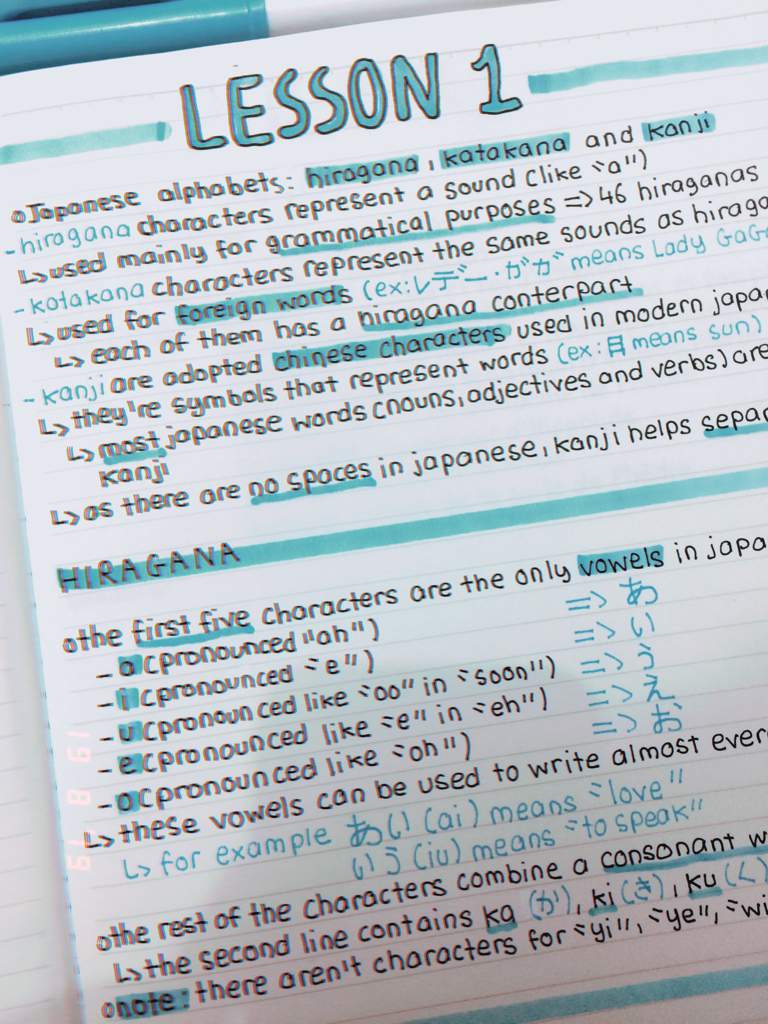 LESSON 1
Japanese alphabets: hiragana, katakana and kanji
- hiragana characters represent a sound (like "a")
↳ used mainly for grammatical purposes => 46 hiraganas
- katakana characters represent the same sounds as hiraga
↳ used for foreign words (ex: レデー・ガガ means Lady GaGa
↳ each of them has a hiragana conterpart
- kanji are adopted chinese characters used in modern japa
↳ they're symbols that represent words (ex: 日 means sun)
↳ most japanese words (nouns, adjectives and verbs) are
kanji
↳ as there are no spaces in japanese, kanji helps separ
HIRAGANA
the first five characters are the only vowels in japa
- a (pronounced "ah") => あ
- i (pronounced "e") => い
- u (pronounced like "oo" in "soon") => う
- e (pronounced like "e" in "eh") => え
- o (pronounced like "oh") => お
↳ these vowels can be used to write almost ever
↳ for example あい (ai) means "love"
いう (iu) means "to speak"
the rest of the characters combine a consonant w
↳ the second line contains ka (か), ki (き), ku (く)
note: there aren't characters for "yi", "ye", "wi
19 8 19